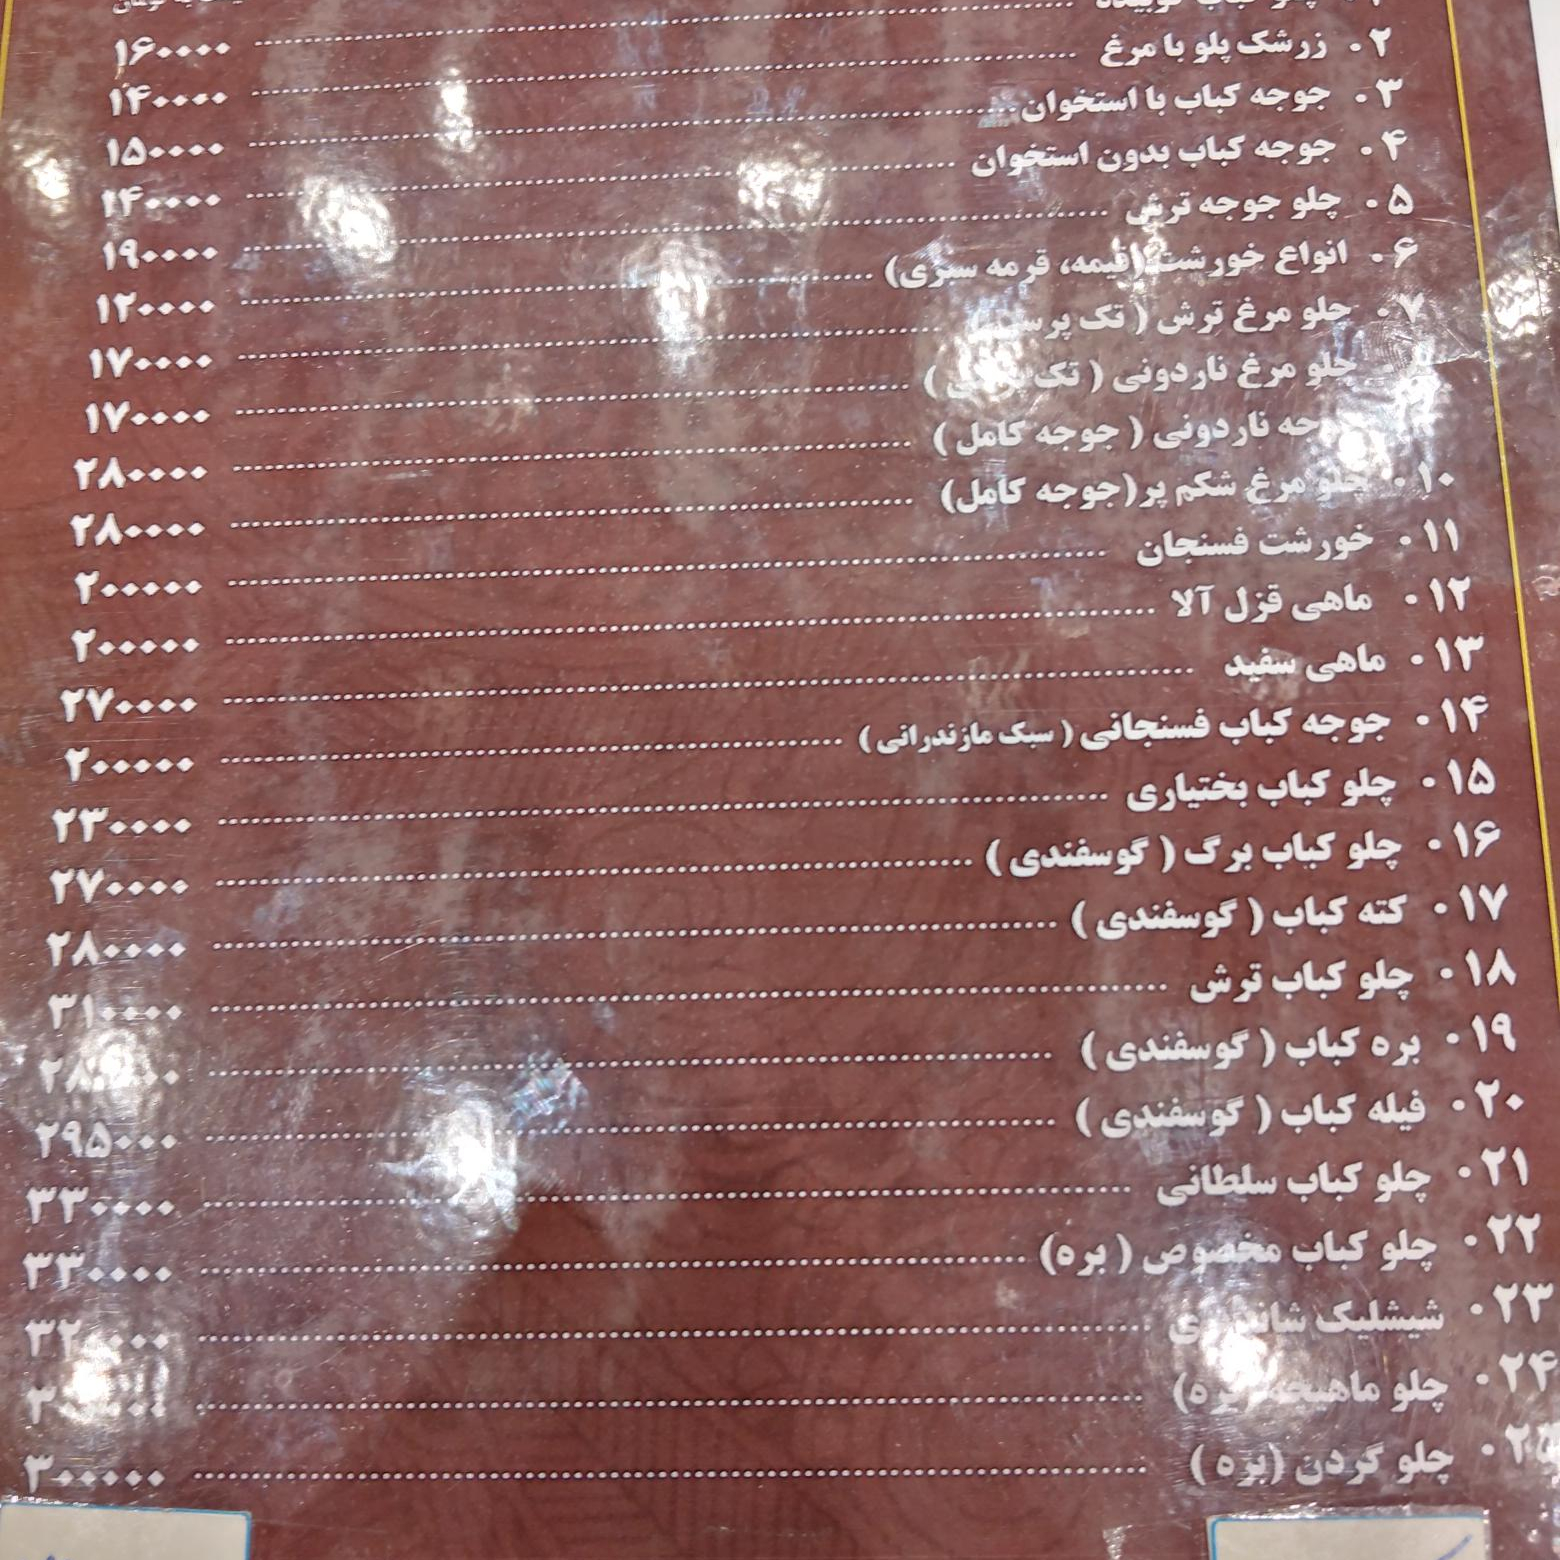 قیمت به تومان
۱ • چلو کباب کوبیده ........ ۱۶۰۰۰۰
۲ • زرشک پلو با مرغ ........ ۱۴۰۰۰۰
۳ • جوجه کباب با استخوان ........ ۱۵۰۰۰۰
۴ • جوجه کباب بدون استخوان ........ ۱۴۰۰۰۰
۵ • چلو جوجه ترش ........ ۱۹۰۰۰۰
۶ • انواع خورشت (قیمه، قرمه سبزی) ........ ۱۲۰۰۰۰
۷ • چلو مرغ ترش ( تک ........ ۱۷۰۰۰۰
چلو مرغ ناردونی ( تک ) ........ ۱۷۰۰۰۰
ناردونی ( جوجه کامل ) ........ ۲۸۰۰۰۰
۱۰ • چلو مرغ شکم پر(جوجه کامل) ........ ۲۸۰۰۰۰
۱۱ • خورشت فسنجان ........ ۲۰۰۰۰۰
۱۲ • ماهی قزل آلا ........ ۲۰۰۰۰۰
۱۳ • ماهی سفید ........ ۲۷۰۰۰۰
۱۴ • جوجه کباب فسنجانی ( سبک مازندرانی ) ........ ۲۰۰۰۰۰
۱۵ • چلو کباب بختیاری ........ ۲۳۰۰۰۰
۱۶ • چلو کباب برگ ( گوسفندی ) ........ ۲۷۰۰۰۰
۱۷ • کته کباب ( گوسفندی ) ........ ۲۸۰۰۰۰
۱۸ • چلو کباب ترش ........ ۳۱۰۰۰۰
۱۹ • بره کباب ( گوسفندی ) ........ ۲۸۰۰۰۰
۲۰ • فیله کباب ( گوسفندی ) ........ ۲۹۵۰۰۰
۲۱ • چلو کباب سلطانی ........ ۳۳۰۰۰۰
۲۲ • چلو کباب مخصوص ( بره) ........ ۳۳۰۰۰۰
۲۳ • شیشلیک ........ ۳۲۰۰۰۰
۲۴ • چلو ماهیچه (بره) ........
۲۵ • چلو گردن (بره ) ........ ۳۰۰۰۰۰